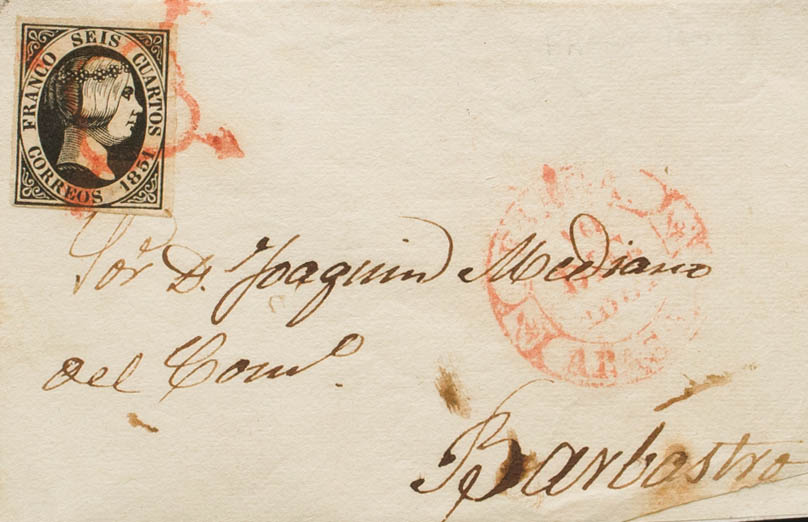 FRANCO SEIS CUARTOS
CORREOS 1851
Sor. D. Joaquin Mediano
del Como.
Barbastro